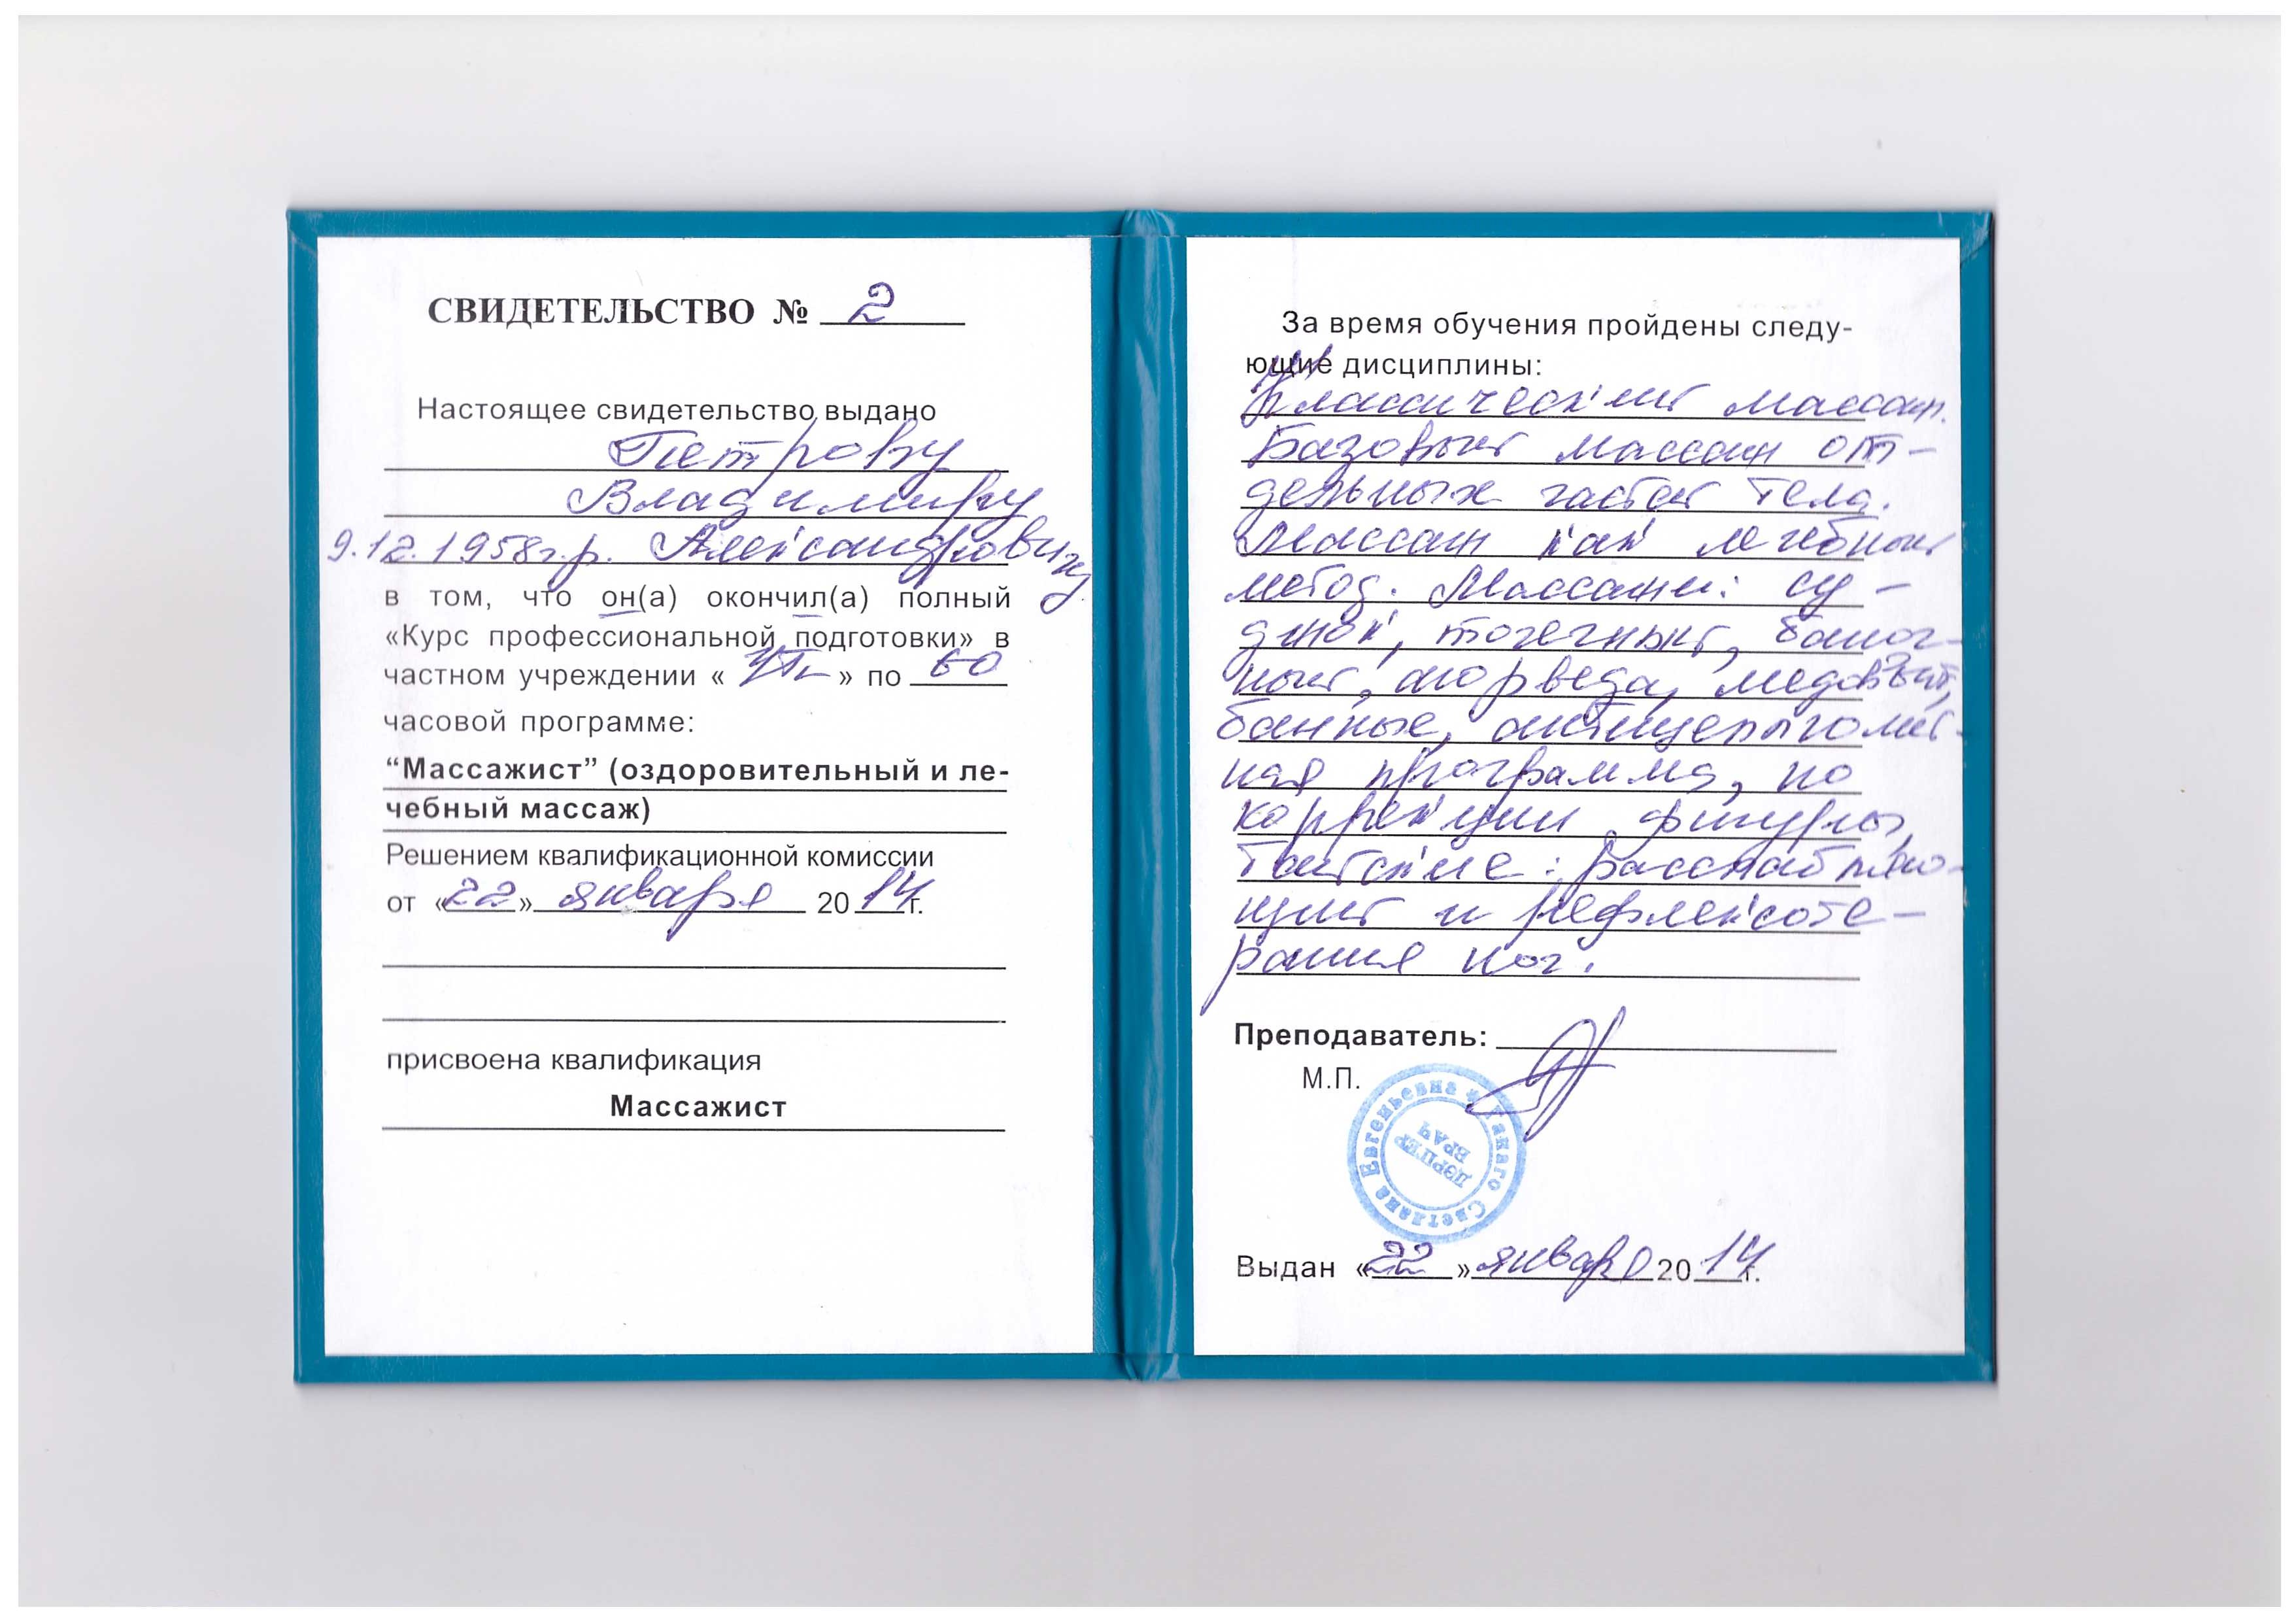 СВИДЕТЕЛЬСТВО № 2
Настоящее свидетельство выдано
Петрову
Владимиру
9.12.1958г.р. Александровичу
в том, что он(а) окончил(а) полный
«Курс профессиональной подготовки» в
частном учреждении « » по 60
часовой программе:
“Массажист” (оздоровительный и ле-
чебный массаж)
Решением квалификационной комиссии
от «22» января 2014г.
присвоена квалификация
Массажист
За время обучения пройдены следу-
ющие дисциплины:
Классический массаж.
Базовый массаж от-
дельных частей тела.
Массаж как лечебный
метод. Массажи: су-
джок, точечный, баноч-
ный, аюрведа, медовый,
банные, антицеллюлит-
ная программа, по
коррекции фигуры,
Тайские: расслабляю-
щий и рефлексоте-
рапия ног.
Преподаватель:
М.П.
Светлана Евгеньевна
ВРАЧ
Выдан «22» января 2014г.